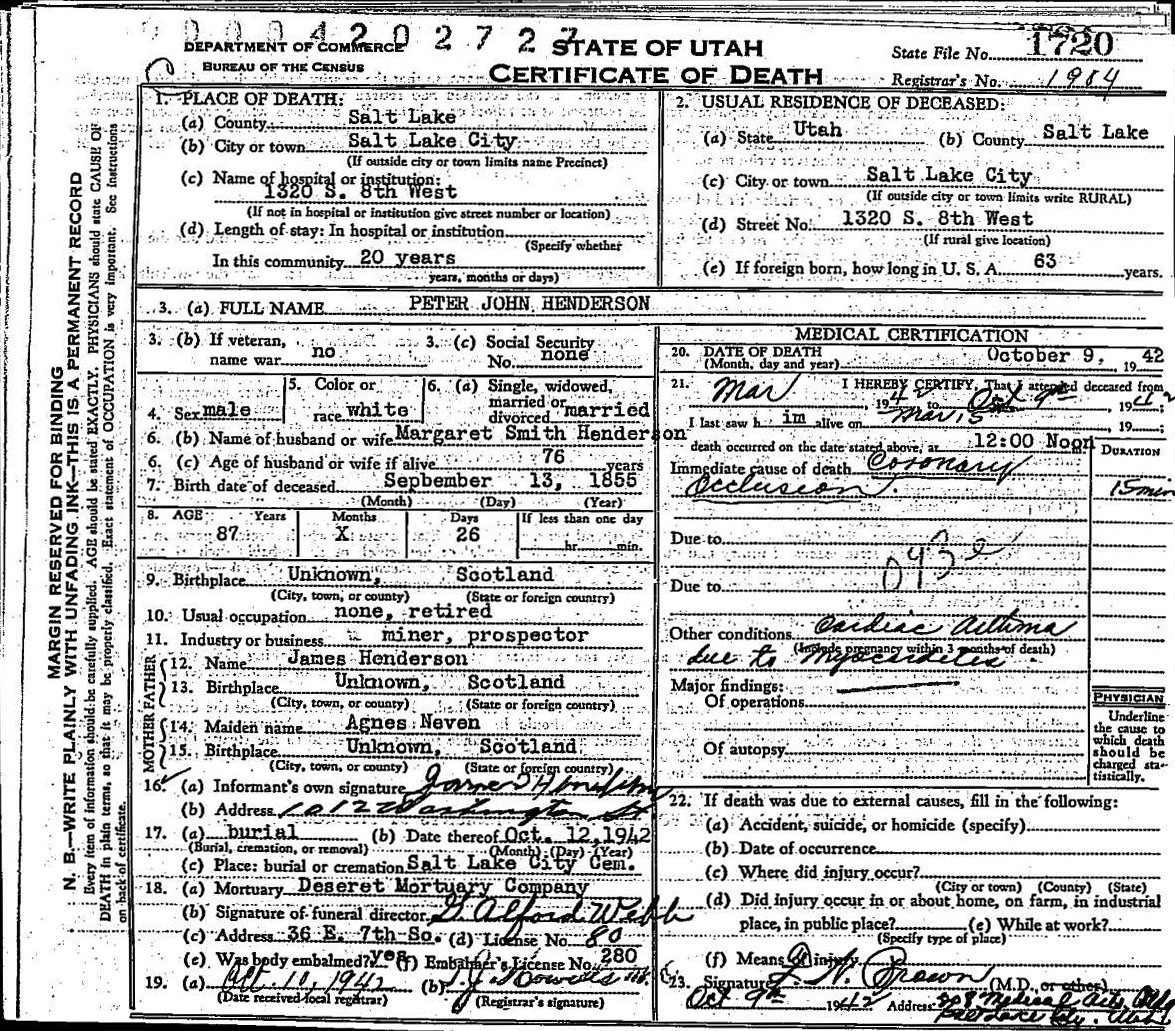 0004202727
DEPARTMENT OF COMMERCE
BUREAU OF THE CENSUS
STATE OF UTAH
CERTIFICATE OF DEATH
State File No. 1720
Registrar's No. 1984
MARGIN RESERVED FOR BINDING
N. B.—WRITE PLAINLY WITH UNFADING INK—THIS IS A PERMANENT RECORD
Every item of information should be carefully supplied. AGE should be stated EXACTLY. PHYSICIANS should state CAUSE OF
DEATH in plain terms, so that it may be properly classified. Exact statement of OCCUPATION is very important. See instructions
on back of certificate.
1. PLACE OF DEATH:
(a) County Salt Lake
(b) City or town Salt Lake City
(If outside city or town limits name Precinct)
(c) Name of hospital or institution:
1320 S. 8th West
(If not in hospital or institution give street number or location)
(d) Length of stay: In hospital or institution
(Specify whether
In this community 20 years
years, months or days)
2. USUAL RESIDENCE OF DECEASED:
(a) State Utah (b) County Salt Lake
(c) City or town Salt Lake City
(If outside city or town limits write RURAL)
(d) Street No. 1320 S. 8th West
(If rural give location)
(e) If foreign born, how long in U. S. A. 63 years.
3. (a) FULL NAME PETER JOHN HENDERSON
3. (b) If veteran, name war no
3. (c) Social Security No. none
4. Sex male
5. Color or race white
6. (a) Single, widowed, married or divorced married
6. (b) Name of husband or wife Margaret Smith Henderson
6. (c) Age of husband or wife if alive 76 years
7. Birth date of deceased September 13, 1855
(Month) (Day) (Year)
8. AGE Years Months Days If less than one day
87 X 26 hr. min.
9. Birthplace Unknown, Scotland
(City, town, or county) (State or foreign country)
10. Usual occupation none, retired
11. Industry or business miner, prospector
FATHER
12. Name James Henderson
13. Birthplace Unknown, Scotland
(City, town, or county) (State or foreign country)
MOTHER
14. Maiden name Agnes Neven
15. Birthplace Unknown, Scotland
(City, town, or county) (State or foreign country)
16. (a) Informant's own signature
(b) Address 1012 Washington St
17. (a) burial (b) Date thereof Oct. 12, 1942
(Burial, cremation, or removal) (Month) (Day) (Year)
(c) Place: burial or cremation Salt Lake City Cem.
18. (a) Mortuary Deseret Mortuary Company
(b) Signature of funeral director G Alford Webb
(c) Address 36 E. 7th So. (d) License No. 80
(e) Was body embalmed? yes (f) Embalmer's License No. 280
19. (a) Oct. 10, 1942 (b)
(Date received local registrar) (Registrar's signature)
MEDICAL CERTIFICATION
20. DATE OF DEATH
(Month, day and year) October 9, 1942
21. I HEREBY CERTIFY, That I attended deceased from
Mar 1942 to Oct 9th, 1942
I last saw h im alive on Mar 15, 19
death occurred on the date stated above, at 12:00 Noon
DURATION
Immediate cause of death Coronary
Occlusion. 15 min
Due to
Due to
Other conditions Cardiac Asthma
(Include pregnancy within 3 months of death)
due to Myocarditis.
Major findings:
Of operations
Of autopsy
PHYSICIAN
Underline
the cause to
which death
should be
charged sta-
tistically.
22. If death was due to external causes, fill in the following:
(a) Accident, suicide, or homicide (specify)
(b) Date of occurrence
(c) Where did injury occur?
(City or town) (County) (State)
(d) Did injury occur in or about home, on farm, in industrial
place, in public place? (e) While at work?
(Specify type of place)
(f) Means of injury
23. Signature L. N. Brown (M.D. or other)
Oct 9th 1942 Address Medical Arts
Salt Lake City, Utah